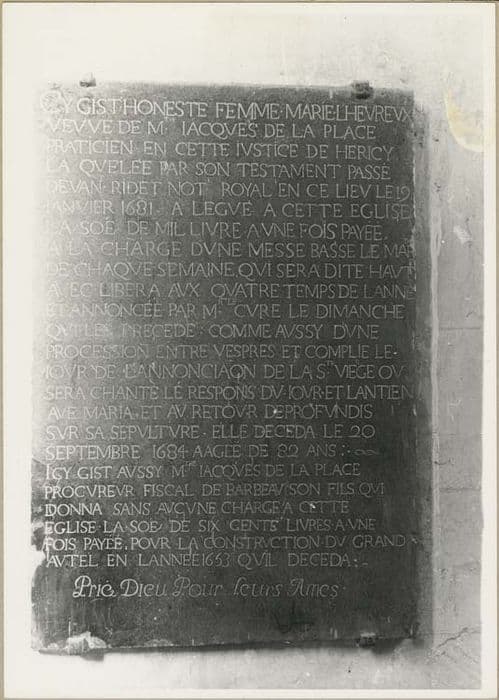 CY GIST HONESTE FEMME MARIE LHEVREVX
VEVVE DE Mᵉ IACQVES DE LA PLACE
PRATICIEN EN CETTE IVSTICE DE HERICY
LA QVELEE PAR SON TESTAMENT PASSE
DEVAN RIDET NOTᵉ ROYAL EN CE LIEV LE 19
IANVIER 1681 A LEGVE A CETTE EGLISE
LA SOE DE MIL LIVRE A VNE FOIS PAYEE
A LA CHARGE DVNE MESSE BASSE LE
DE CHAQVE SEMAINE QVI SERA DITE HAVT
AVEC LIBERA AVX QVATRE TEMPS DE LANNE
ET ANNONCEE PAR Mʳ LE CVRE LE DIMANCHE
QVI LES PRECEDE : COMME AVSSY DVNE
PROCESSION ENTRE VESPRES ET COMPLIE LE·
IOVR DE L'ANNONCIAON DE LA Sᵗᵉ VIEGE OV
SERA CHANTE LE RESPONS DV IOVR ET LANTIEN
AVE MARIA ET AV RETOVR DEPROFVNDIS
SVR SA SEPVLTVRE · ELLE DECEDA LE 20
SEPTEMBRE 1684 AAGEE DE 82 ANS :·
ICY GIST AVSSY Mʳᵉ IACQVES DE LA PLACE
PROCVREVR FISCAL DE BARBEAV SON FILS QVI
DONNA SANS AVCVNE CHARGE A CETTE
EGLISE LA SOE DE SIX CENTS LIVRES A VNE
FOIS PAYEE, POVR LA CONSTRVCTION DV GRAND
AVTEL EN LANNEE 1653 QVIL DECEDA :·
Prié Dieu Pour leurs Ames·